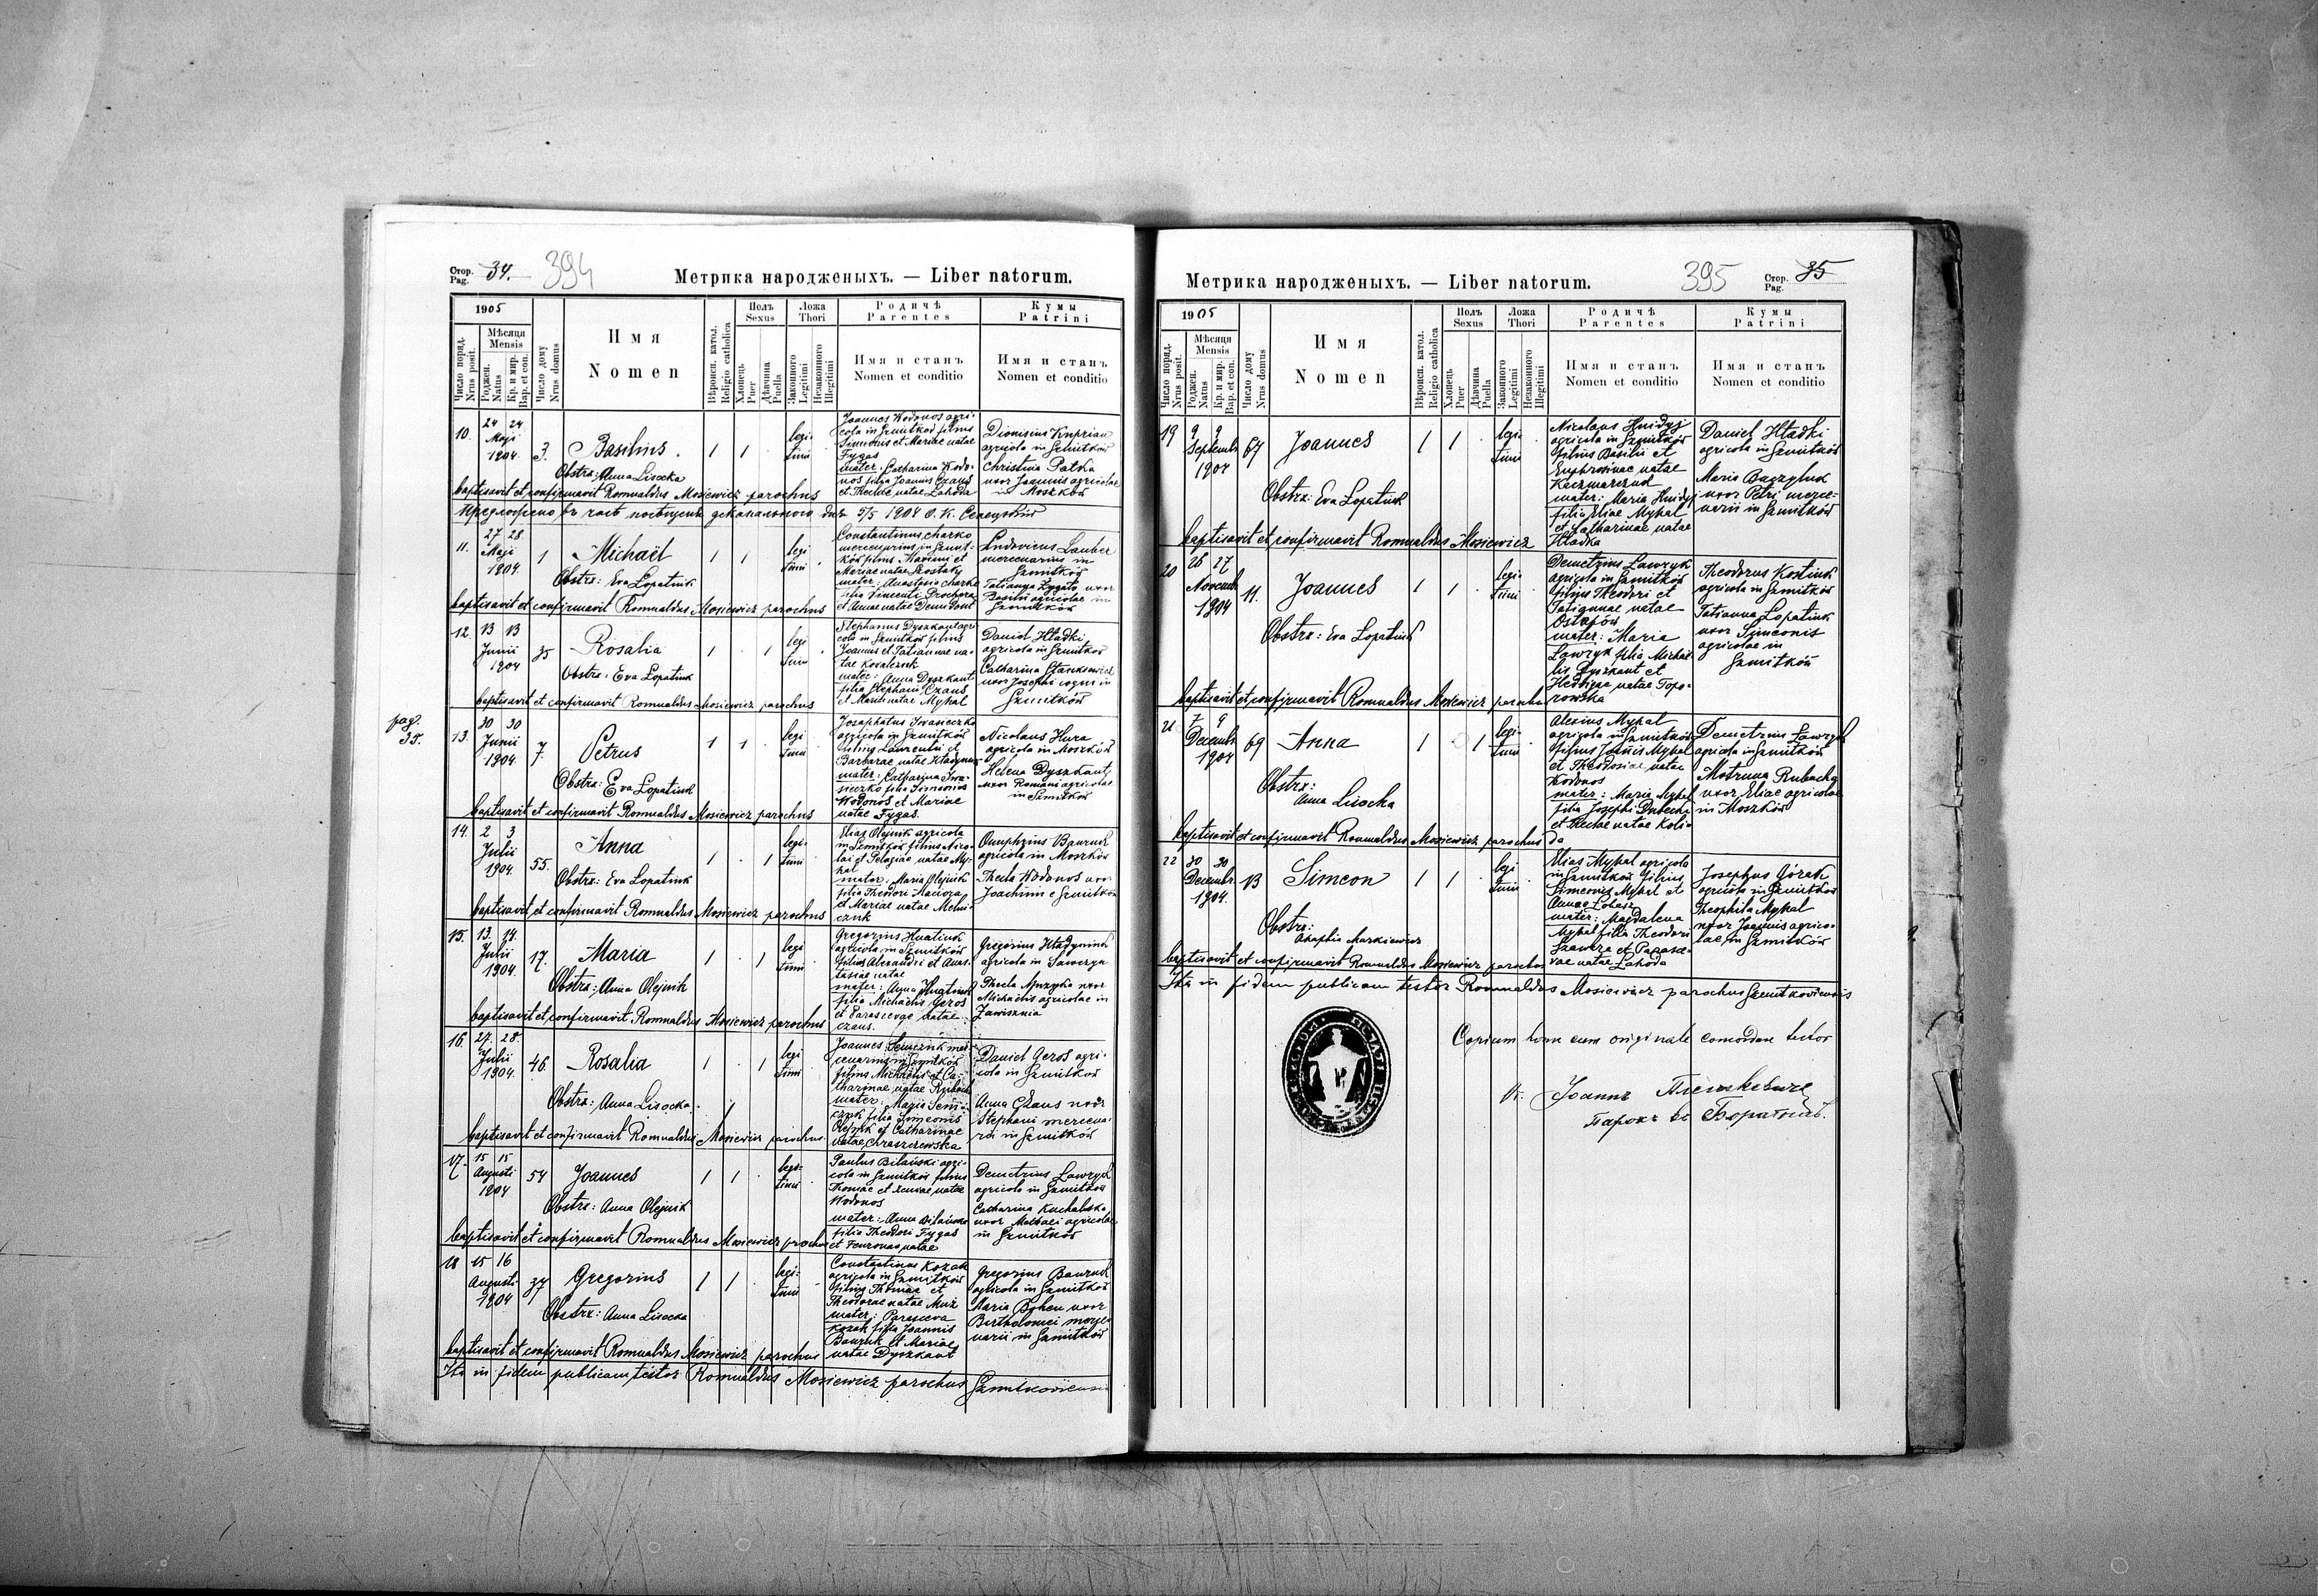 Стор. 34. 394
Pag.
Метрика народженыхъ. — Liber natorum.
1905
Число поряд.
Nrus posit.
Мѣсяця
Mensis
Роджен.
Natus
Кр. и мир.
Bap. et con.
Число дому
Nrus domus
Имя
Nomen
Вѣроисп. катол.
Religio catholica
Полъ
Sexus
Хлопець
Puer
Дѣвчина
Puella
Ложа
Thori
Законного
Legitimi
Незаконного
Illegitimi
Родичѣ
Parentes
Имя и станъ
Nomen et conditio
Кумы
Patrini
Имя и станъ
Nomen et conditio
10. 24 24 Maji 1904. 3. Basilius. 1 1 legi-
timi
Obstrx: Anna Lisocka
Joannes Wodonos agri-
cola in Szmitków filius
Simeonis et Mariae natae
Fygas
mater: Catharina Wodo-
nos filia Joannis Czaus
et Theclae natae Lahoda
Dionisius Kuprian
agricola in Szmitków
Christina Patka
uxor Joannis agricolae
in Moszków
baptisavit et confirmavit Romualdus Mosiewicz parochus
5/5 1904
11. 27 28 Maji 1904. 1 Michaël 1 1 legi
timi
Obstrx: Eva Lopatiuk
Constantinus Charko
mercenarius in Szmit-
ków filius Mariani et
Mariae natae
mater: Anastasia Charko
filia Vincenti Prochera
et Annae natae
Ludovicus Lauber
mercenarius in
Szmitków
Tatianna uxor
Basilii agricolae in
Szmitków
baptisavit et confirmavit Romualdus Mosiewicz parochus
12. 13 13 Junii 1904 35 Rosalia 1 1 legi
timi
Obstrx: Eva Lopatiuk
Stephanus Dyszkant agri
cola in Szmitków filius
Joannis et Tatiannae na-
tae Kowalczuk
mater: Anna Dyszkant
filia Stephani Czaus
et Mariae natae Mykal
Daniel Hładki
agricola in Szmitków
Catharina Stankiewicz
uxor Josephi in
Szmitków
baptisavit et confirmavit Romualdus Mosiewicz parochus
pag.
35.
13. 30 30 Junii 1904. 7. Petrus 1 1 legi
timi
Obstrx: Eva Lopatiuk
Josaphatus Iwasieczko
agricola in Szmitków
filius Laurentii et
Barbarae natae
mater: Catharina Iwa-
sieczko filia Simeonis
Wodonos et Mariae
natae Fygas.
Nicolaus Hura
agricola in Moszków
Helena Dyszkant
uxor Romani agricolae
in Szmitków
baptisavit et confirmavit Romualdus Mosiewicz parochus
14. 2 3 Julii 1904. 55. Anna 1 1 legi-
timi
Obstrx: Eva Lopatiuk
Elias Olejnik agricola
in Szmitków filius Nico-
lai et Pelagiae natae My-
kal
mater: Maria Olejnik
filia Theodori
et Mariae natae Melni-
czuk
Onuphrius Bauruk
agricola in Moszków
Thecla Wodonos uxor
Joachimi e Szmitków
baptisavit et confirmavit Romualdus Mosiewicz parochus
15. 13. 14. Julii 1904. 17. Maria 1 1 legi
timi
Obstrx: Anna Olejnik
Gregorius Hnatiuk
agricola in Szmitków
filius Alexandri et Anas-
tasiae natae
mater: Anna Hnatiuk
filia Michaelis Geros
et Parascevae natae
Czaus.
Gregorius Hładyniuk
agricola in
Thecla uxor
Michaelis agricolae in
Zawisznia
baptisavit et confirmavit Romualdus Mosiewicz parochus
16. 27. 28. Julii 1904. 46. Rosalia 1 1 legi
timi
Obstrx: Anna Lisocka
Joannes Semczuk mer-
cenarius in Szmitków
filius Michaelis et Ca-
tharinae natae
mater: Maria Sem-
czuk filia Simeonis
Olejnik et Catharinae
natae
Daniel Geros agri-
cola in Szmitków
Anna Czaus uxor
Stephani mercena-
rii in Szmitków
baptisavit et confirmavit Romualdus Mosiewicz parochus
17. 15 15 Augusti 1904 54 Joannes 1 1 legi-
timi
Obstrx: Anna Olejnik
Paulus Bilański agri-
cola in Szmitków filius
Thomae et Xeniae natae
Wodonos
mater: Anna Bilańska
filia Theodori Fygas
et natae
Demetrius Ławryk
agricola in Szmitków
Catharina
uxor agricolae
in Szmitków
baptisavit et confirmavit Romualdus Mosiewicz parochus
18 15 16 Augusti 1904 37 Gregorius 1 1 legi-
timi
Obstrx: Anna Lisocka
Constantinus Kozak
agricola in Szmitków
filius Thomae et
Theodorae natae
mater: Parasceva
Kozak filia Joannis
Bauruk et Mariae
natae Dyszkant
Gregorius Bauruk
agricola in Szmitków
Maria uxor
Bartholomei merce-
narii in Szmitków
baptisavit et confirmavit Romualdus Mosiewicz parochus
Ita in fidem publicam testor Romualdus Mosiewicz parochus Szmitkoviensis
Метрика народженыхъ. — Liber natorum.
395 Стор. 35
Pag.
1905
Число поряд.
Nrus posit.
Мѣсяця
Mensis
Роджен.
Natus
Кр. и мир.
Bap. et con.
Число дому
Nrus domus
Имя
Nomen
Вѣроисп. катол.
Religio catholica
Полъ
Sexus
Хлопець
Puer
Дѣвчина
Puella
Ложа
Thori
Законного
Legitimi
Незаконного
Illegitimi
Родичѣ
Parentes
Имя и станъ
Nomen et conditio
Кумы
Patrini
Имя и станъ
Nomen et conditio
19 9 9 Septembr 1904 67 Joannes 1 1 legi-
timi
Obstrx: Eva Lopatiuk
Nicolaus Hnidyj
agricola in Szmitków
filius Basilii et
Euphrosinae natae
Kaczmarczuk
mater: Maria Hnidyj
filia Eliae Mykal
et Catharinae natae
Hładka
Daniel Hładki
agricola in Szmitków
Maria
uxor Petri merce-
narii in Szmitków
baptisavit et confirmavit Romualdus Mosiewicz
20 26 27 Novembr 1904 11. Joannes 1 1 legi-
timi
Obstrx: Eva Lopatiuk
Demetrius Ławryk
agricola in Szmitków
filius Theodori et
Tatiannae natae
Ostapów
mater: Maria
Ławryk filia Michae-
lis Dyszkant et
Hedvigae natae Topo-
rowska
Theodorus Kostiuk
agricola in Szmitków
Tatianna Lopatiuk
uxor Simeonis
agricolae in
Szmitków
baptisavit et confirmavit Romualdus Mosiewicz parochus
21 7 9 Decembr 1904 69 Anna 1 1 legi-
timi
Obstrx:
Anna Lisocka
Alexius Mykal
agricola in Szmitków
filius Joannis Mykal
et Theodosiae natae
Wodonos
mater: Maria Mykal
filia Josephi Dubecki
et Theclae natae Koli-
da
Demetrius Ławryk
agricola in Szmitków
Motruna Rubacha
uxor Eliae agricolae
in Moszków
baptisavit et confirmavit Romualdus Mosiewicz parochus
22 30 30 Decembr. 1904. 13 Simeon 1 1 legi
timi
Obstrx:
Agaphia Markiewicz
Elias Mykal agricola
in Szmitków filius
Simeonis Mykal et
Annae
mater: Magdalena
Mykal filia Theodori
et Parasce-
vae natae Lahoda
Josephus Górak
agricola in Szmitków
Theophila Mykal
uxor Joannis agrico-
lae in Szmitków
baptisavit et confirmavit Romualdus Mosiewicz parochus
Ita in fidem publicam testor Romualdus Mosiewicz parochus Szmitkoviensis
Copiam hanc cum originale concordare testor